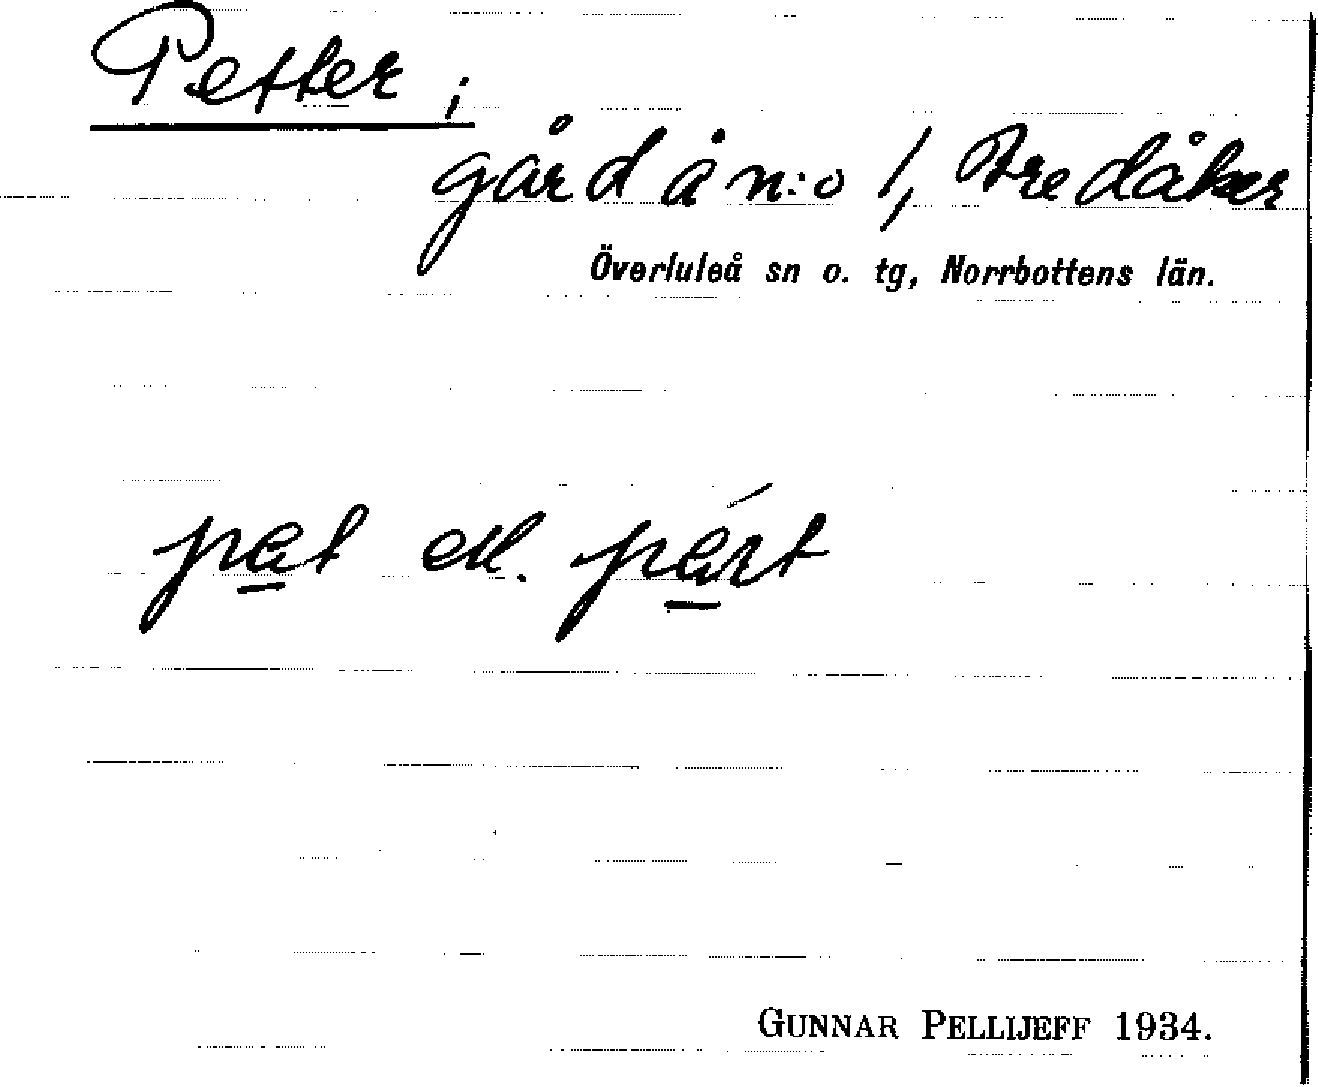 Petter,
gård å n:o 1, Bredåker
Överluleå sn o. tg, Norrbottens län.
pat ell. part
GUNNAR PELLIJEFF 1934.